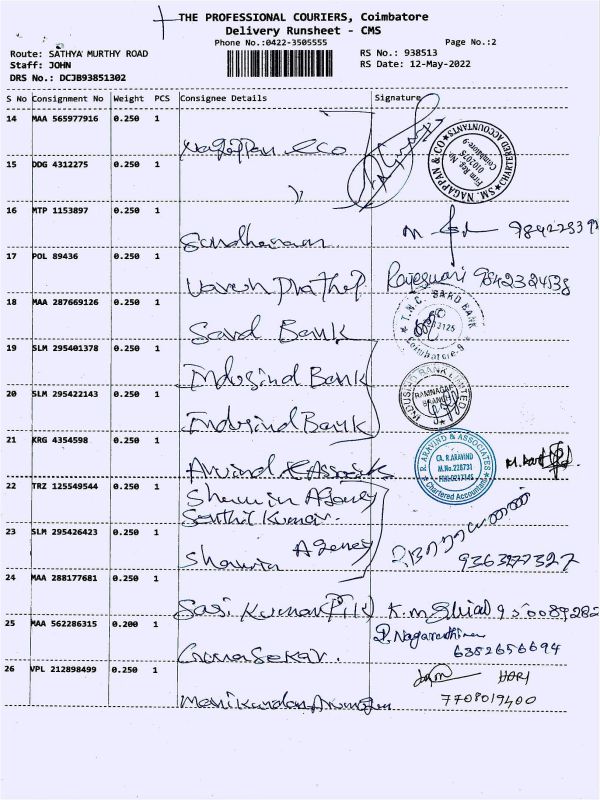 THE PROFESSIONAL COURIERS, Coimbatore
Delivery Runsheet - CMS
Phone No.:0422-3505555
Page No.:2
Route: SATHYA MURTHY ROAD
Staff: JOHN
DRS No.: DCJB93851302
RS No.: 938513
RS Date: 12-May-2022
S No Consignment No Weight PCS Consignee Details Signature
14 MAA 565977916 0.250 1
Nagappan & Co
SM. NAGAPPAN & CO
CHARTERED ACCOUNTANTS
Firm Reg. No.
Coimbatore-9
15 DDG 4312275 0.250 1
16 MTP 1153897 0.250 1
17 POL 89436 0.250 1
Rajeswari
18 MAA 287669126 0.250 1
Sard Bank
T.N.C. SARD BANK
Coimbatore-9
19 SLM 295401378 0.250 1
Indusind Bank
20 SLM 295422143 0.250 1
Indusind Bank
INDUSIND BANK LIMITED
RAMNAGAR
BRANCH
21 KRG 4354598 0.250 1
Arvind & Associ
R. ARAVIND & ASSOCIATES
CA. R.ARAVIND
M.No.228731
Chartered Accountants
22 TRZ 125549544 0.250 1
Sherwin Agency
Senthil Kumar.
23 SLM 295426423 0.250 1
Sherwin Agency
9363977327
24 MAA 288177681 0.250 1
Sasi Kumar
25 MAA 562286315 0.200 1
Gunasekar.
6382656694
26 VPL 212898499 0.250 1
HARI
7708019400